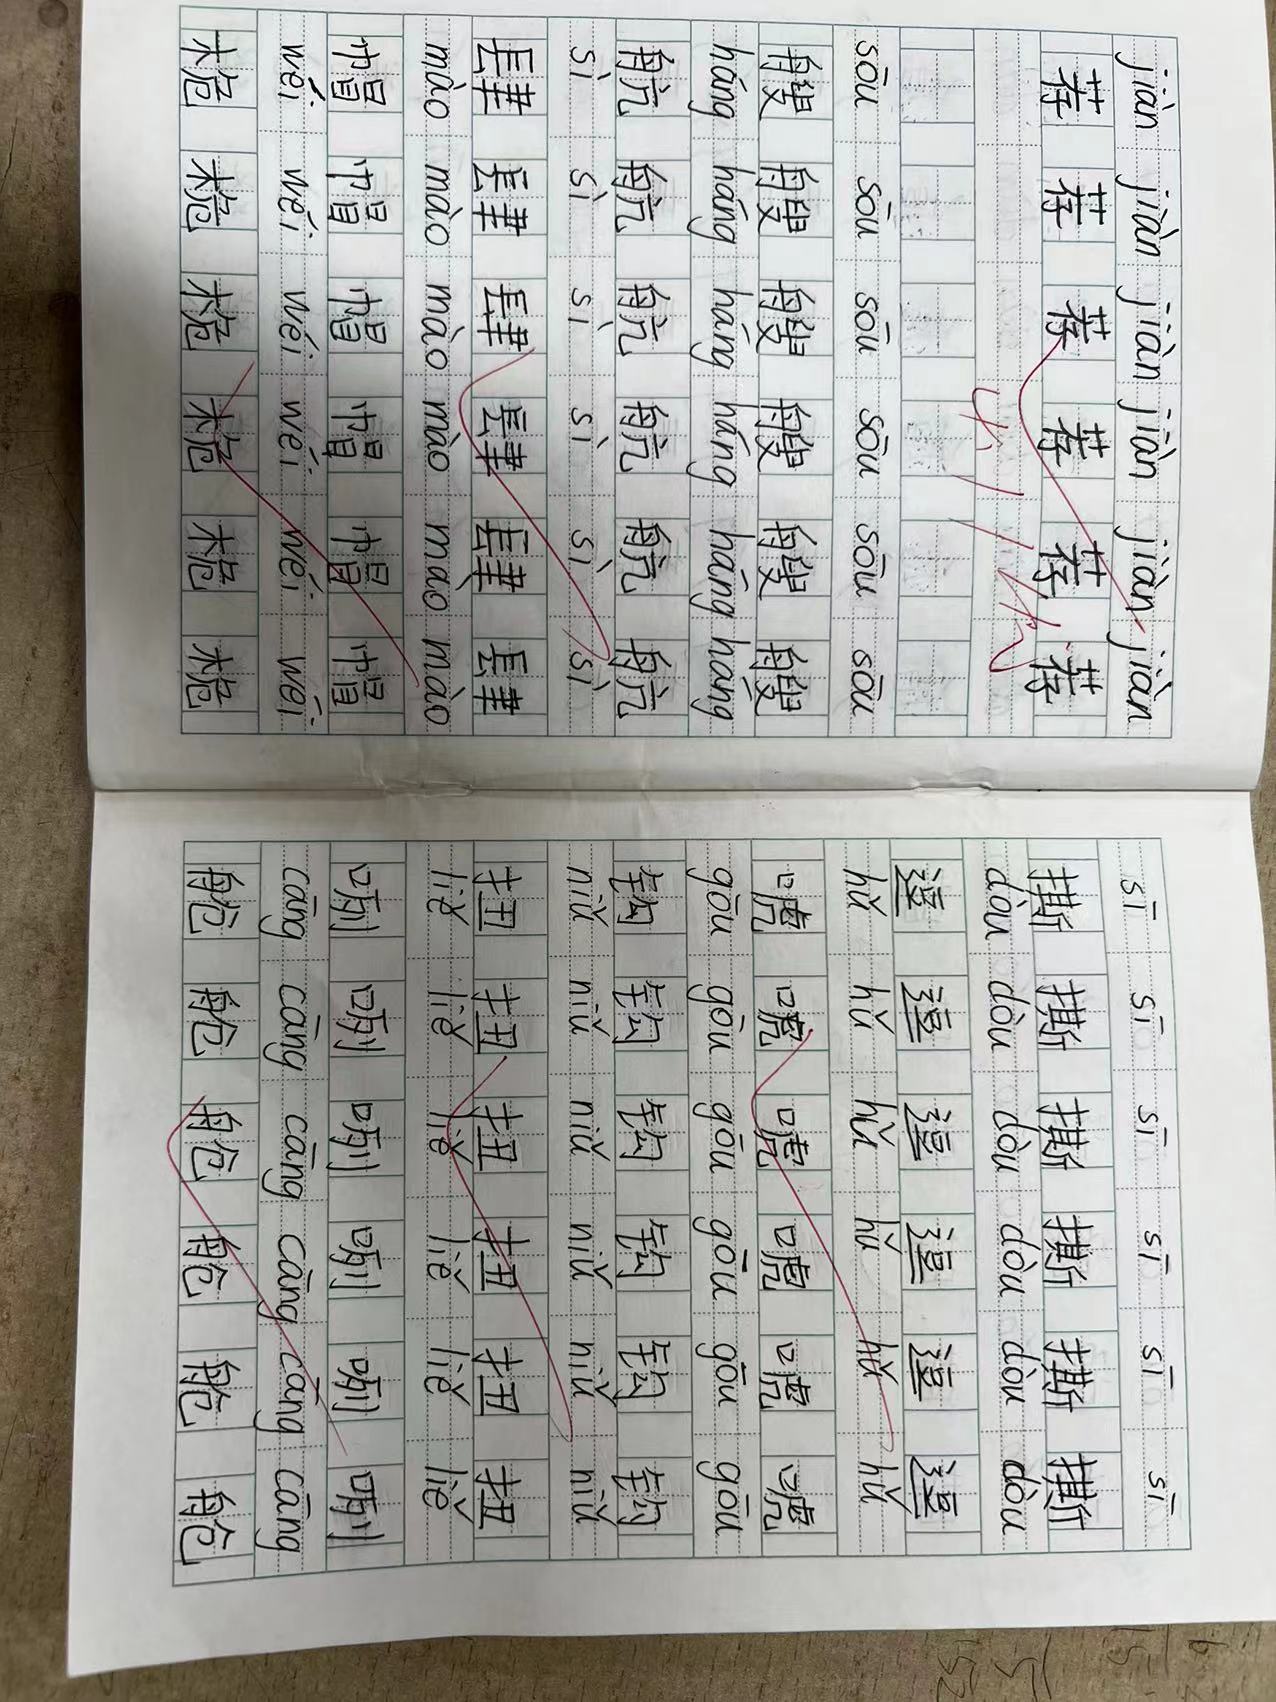 jiàn jiàn jiàn jiàn jiàn jiàn
荐 荐 荐 荐 荐 荐
sōu sōu sōu sōu sōu sōu
艘 艘 艘 艘 艘 艘
háng háng háng háng háng háng
航 航 航 航 航 航
sì sì sì sì sì sì
肆 肆 肆 肆 肆 肆
mào mào mào mào mào mào
帽 帽 帽 帽 帽 帽
wéi wéi wéi wéi wéi wéi
桅 桅 桅 桅 桅 桅
sī sī sī sī sī sī
撕 撕 撕 撕 撕 撕
dòu dòu dòu dòu dòu dòu
逗 逗 逗 逗 逗 逗
hǔ hǔ hǔ hǔ hǔ hǔ
唬 唬 唬 唬 唬 唬
gōu gōu gōu gōu gōu gōu
钩 钩 钩 钩 钩 钩
niǔ niǔ niǔ niǔ niǔ niǔ
扭 扭 扭 扭 扭 扭
liě liě liě liě liě liě
咧 咧 咧 咧 咧 咧
cāng cāng cāng cāng cāng cāng
舱 舱 舱 舱 舱 舱